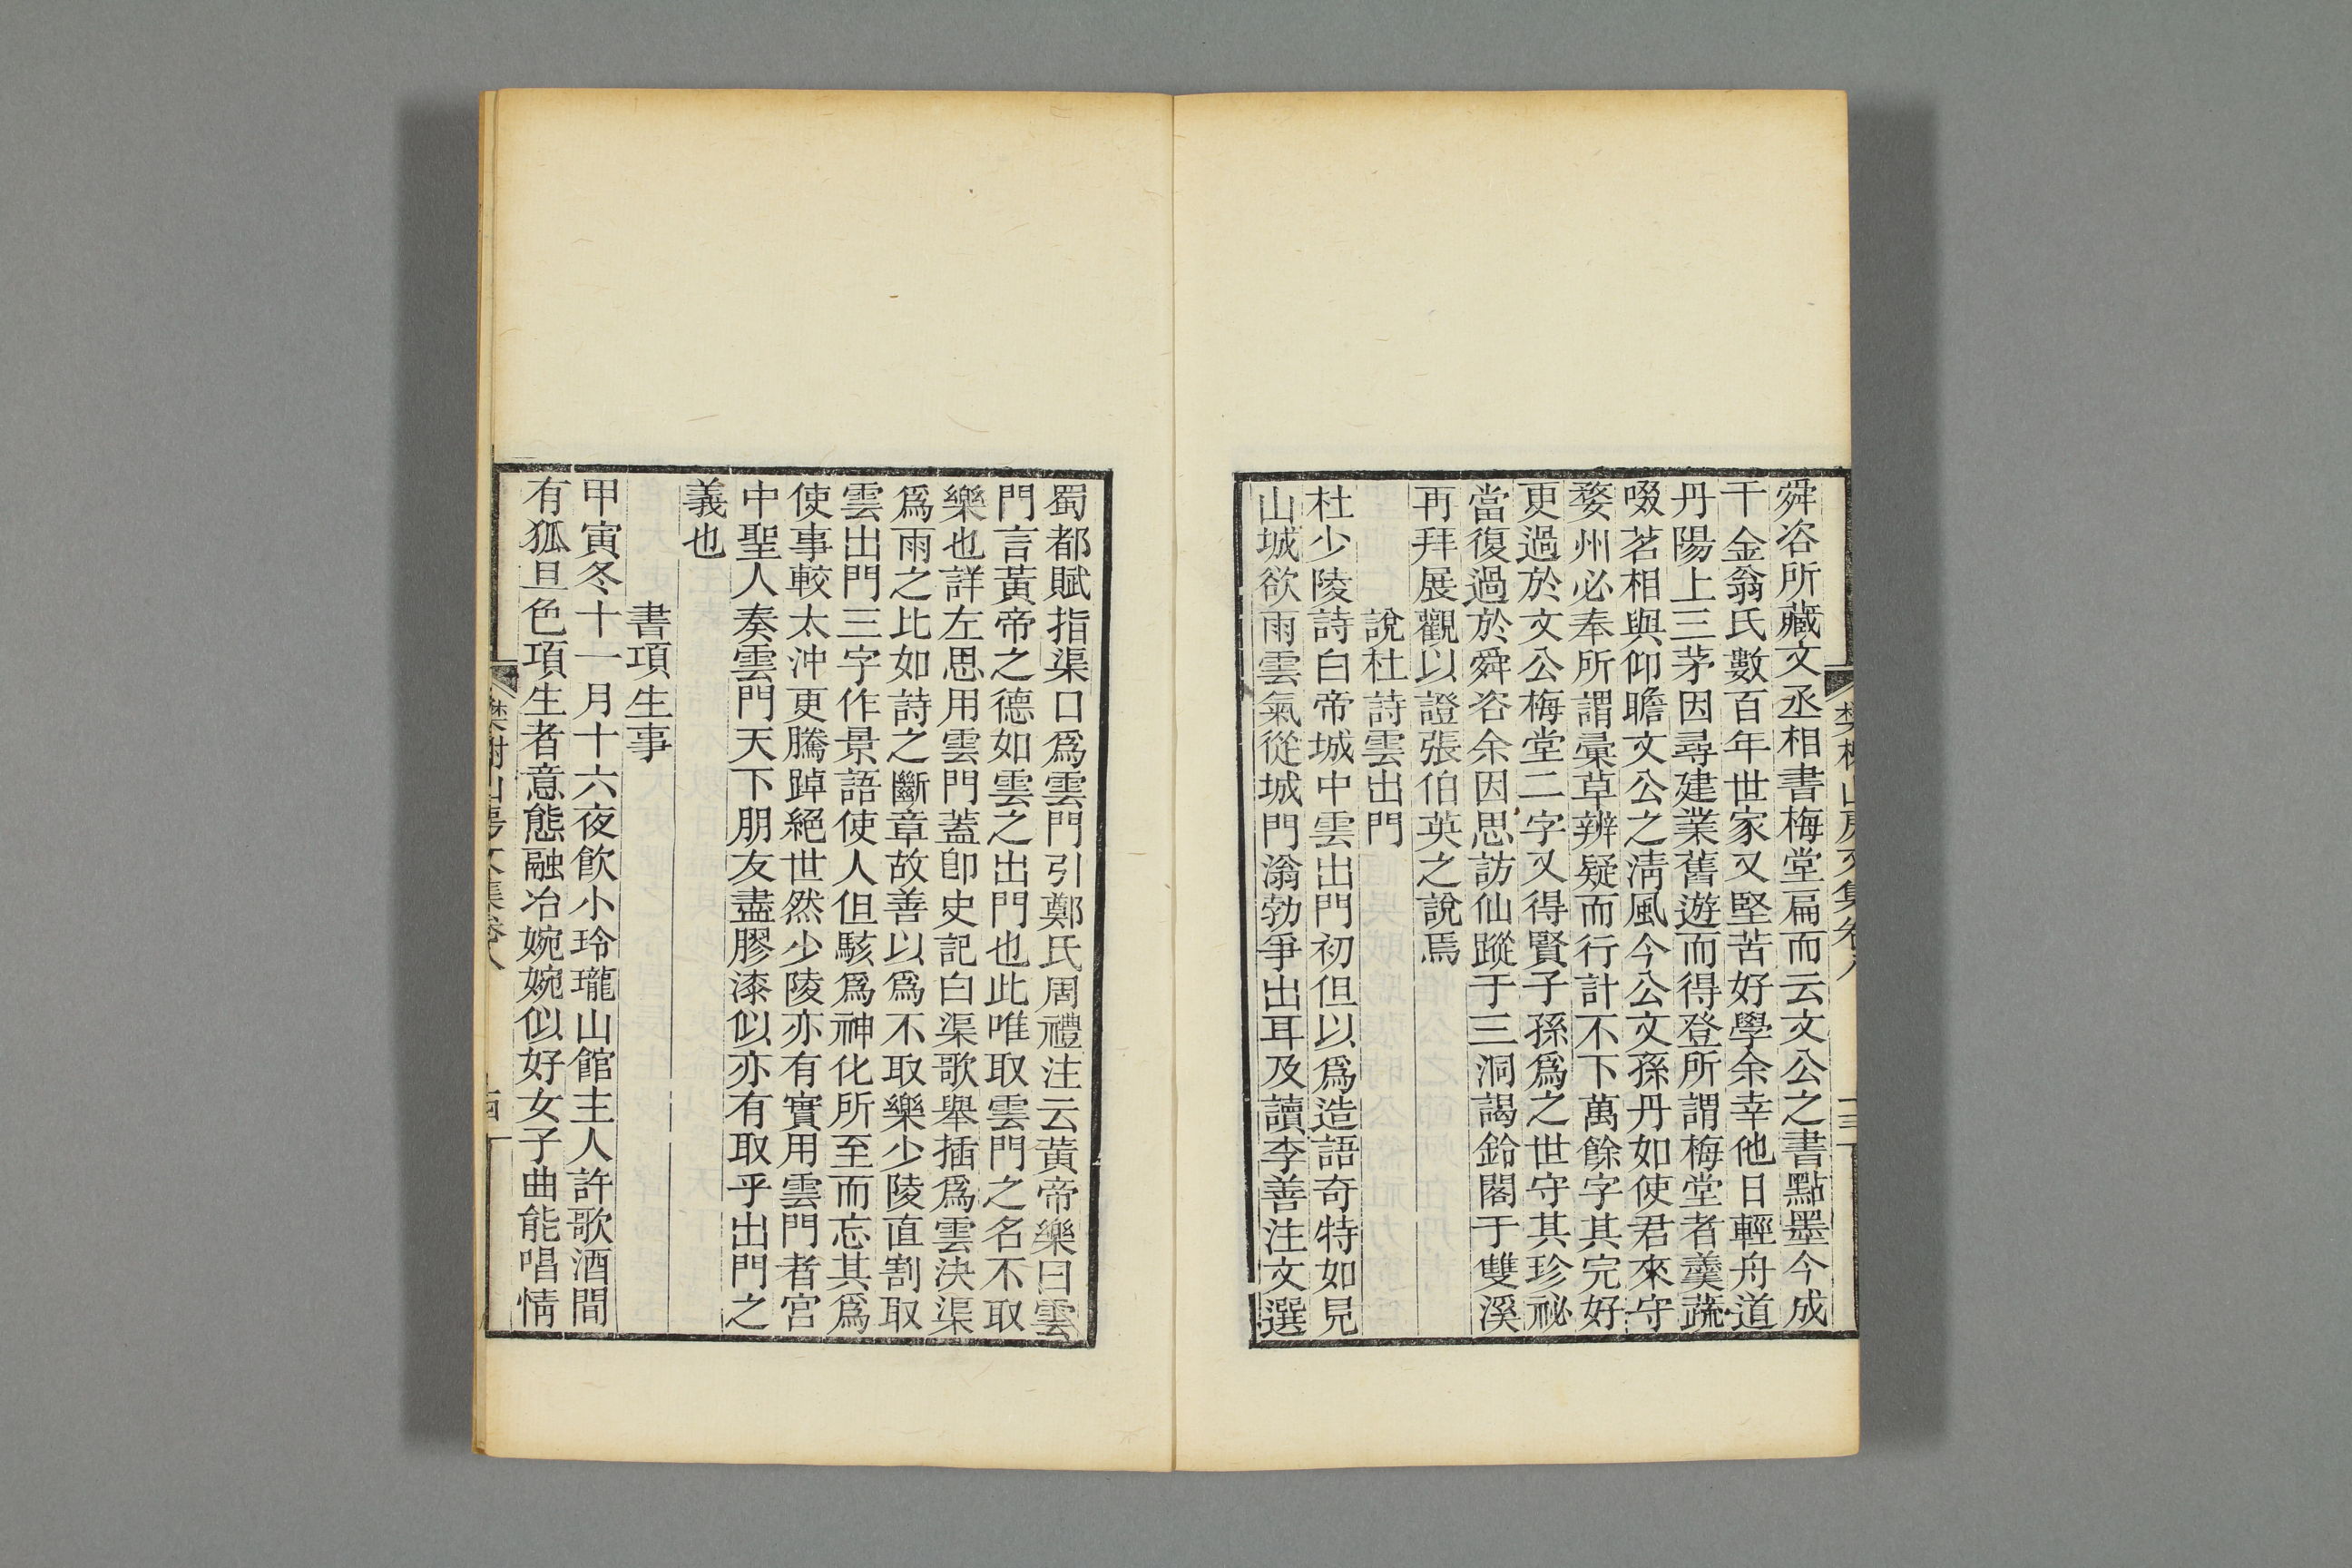 舜咨所藏文丞相書梅堂扁而云文公之書點墨今成
千金翁氏數百年世家又堅苦好學余幸他日輕舟道
丹陽上三茅因尋建業舊遊而得登所謂梅堂者羹蔬
啜茗相與仰瞻文公之淸風今公文孫丹如使君來守
婺州必奉所謂彙草辨疑而行計不下萬餘字其完好
更過於文公梅堂二字又得賢子孫爲之世守其珍祕
當復過於舜咨余因思訪仙蹤于三洞謁鈴閣于雙溪
再拜展觀以證張伯英之說焉
說杜詩雲出門
杜少陵詩白帝城中雲出門初但以爲造語奇特如見
山城欲雨雲氣從城門滃勃爭出耳及讀李善注文選
蜀都賦指渠口爲雲門引鄭氏周禮注云黃帝樂曰雲
門言黃帝之德如雲之出門也此唯取雲門之名不取
樂也詳左思用雲門蓋卽史記白渠歌舉插爲雲決渠
爲雨之比如詩之斷章故善以爲不取樂少陵直割取
雲出門三字作景語使人但駭爲神化所至而忘其爲
使事較太沖更騰踔絕世然少陵亦有實用雲門者宮
中聖人奏雲門天下朋友盡膠漆似亦有取乎出門之
義也
書項生事
甲寅冬十一月十六夜飮小玲瓏山館主人許歌酒間
有狐旦色項生者意態融冶婉婉似好女子曲能唱情